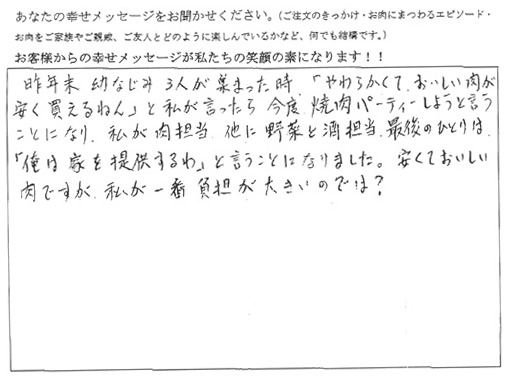 あなたの幸せメッセージをお聞かせください。(ご注文のきっかけ・お肉にまつわるエピソード・
お肉をご家族やご親戚、ご友人とどのように楽しんでいるかなど、何でも結構です。)
お客様からの幸せメッセージが私たちの笑顔の素になります！！
昨年末 幼なじみ 3人が集まった時、「やわらかくて、おいしい肉が
安く買えるねん」と私が言ったら 今度 焼肉パーティーしようと言う
ことになり、私が肉担当、他に野菜と酒担当、最後のひとりは、
「俺は家を提供するわ」と言うことになりました。安くておいしい
肉ですが、私が一番 負担が大きいのでは？